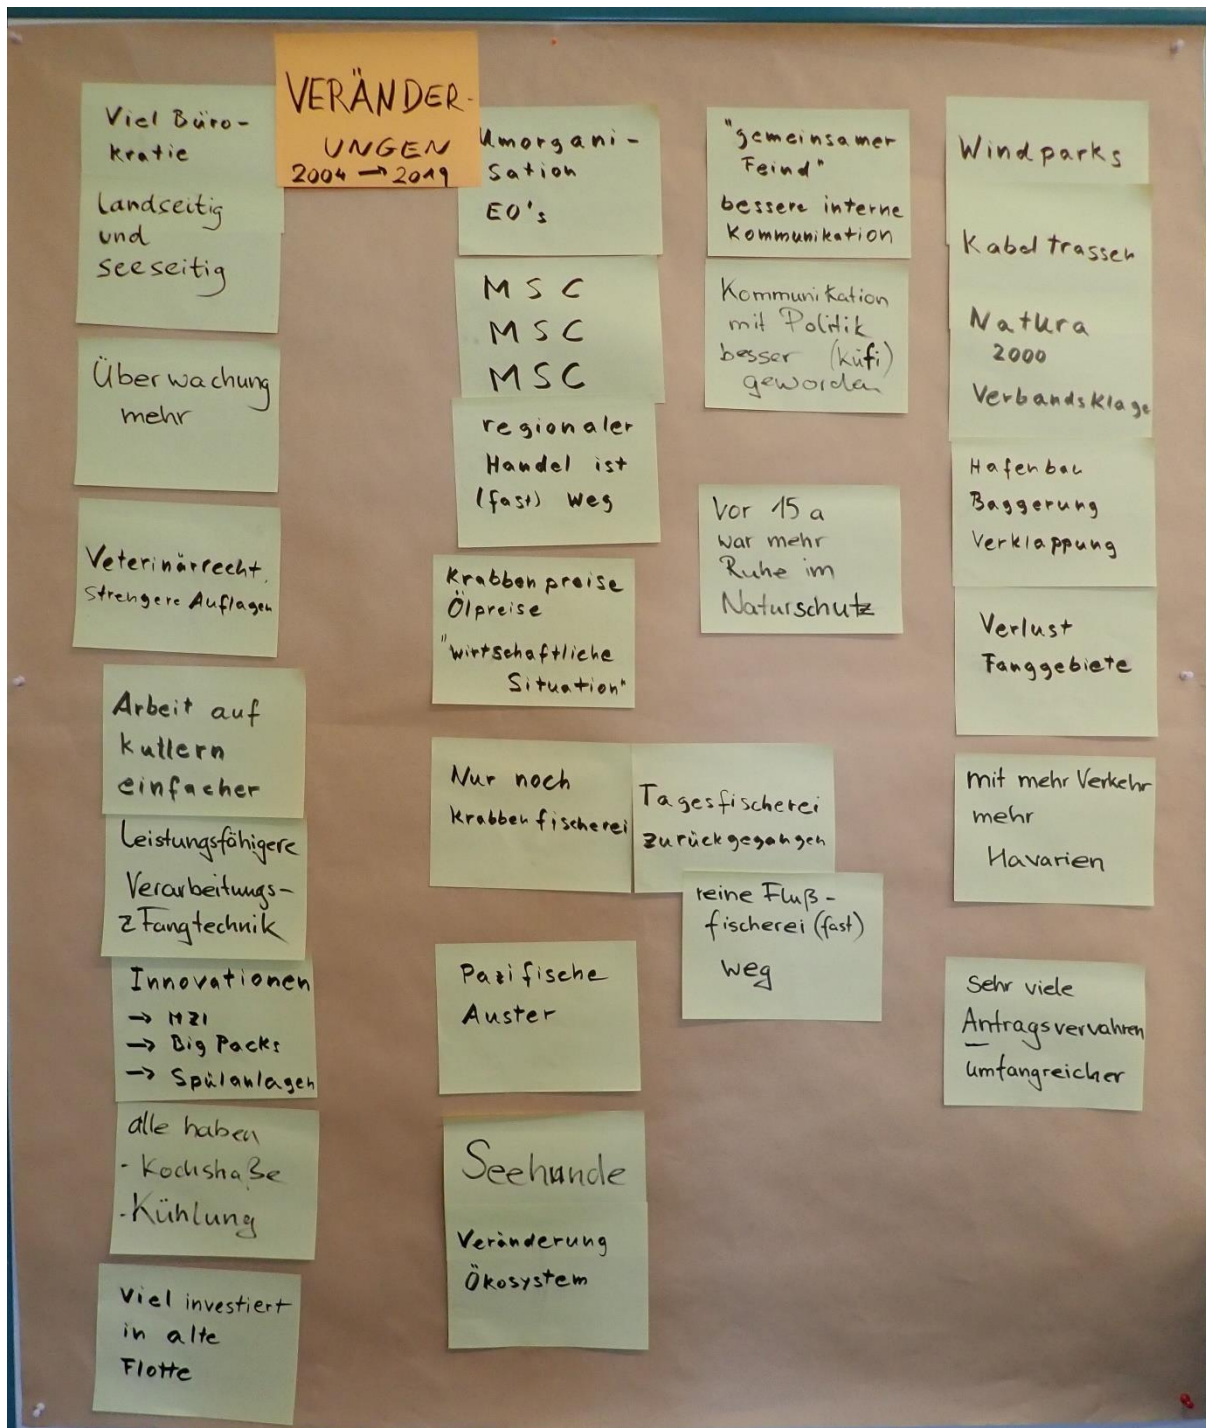 VERÄNDER-
UNGEN
2004 → 2019
Viel Büro-
kratie
landseitig
und
seeseitig
Überwachung
mehr
Veterinärrecht.
strengere Auflagen
Arbeit auf
kuttern
einfacher
Leistungsfähigere
Verarbeitungs-
z Fangtechnik
Innovationen
→ MZI
→ Big Packs
→ Spülanlagen
alle haben
- Kochstraße
- Kühlung
Viel investiert
in alte
Flotte
Umorgani-
sation
EO's
MSC
MSC
MSC
regionaler
Handel ist
(fast) weg
Krabbenpreise
Ölpreise
"wirtschaftliche
Situation"
Nur noch
krabbenfischerei
Tagesfischerei
zurückgegangen
reine Fluß-
fischerei (fast)
weg
Pazifische
Auster
Seehunde
Veränderung
Ökosystem
"gemeinsamer
Feind"
bessere interne
Kommunikation
Kommunikation
mit Politik
besser (küfi)
geworden
Vor 15 a
war mehr
Ruhe im
Naturschutz
Windparks
Kabeltrassen
Natura
2000
Verbandsklage
Hafenbau
Baggerung
Verklappung
Verlust
Fanggebiete
mit mehr Verkehr
mehr
Havarien
Sehr viele
Antragsvervahren
umfangreicher